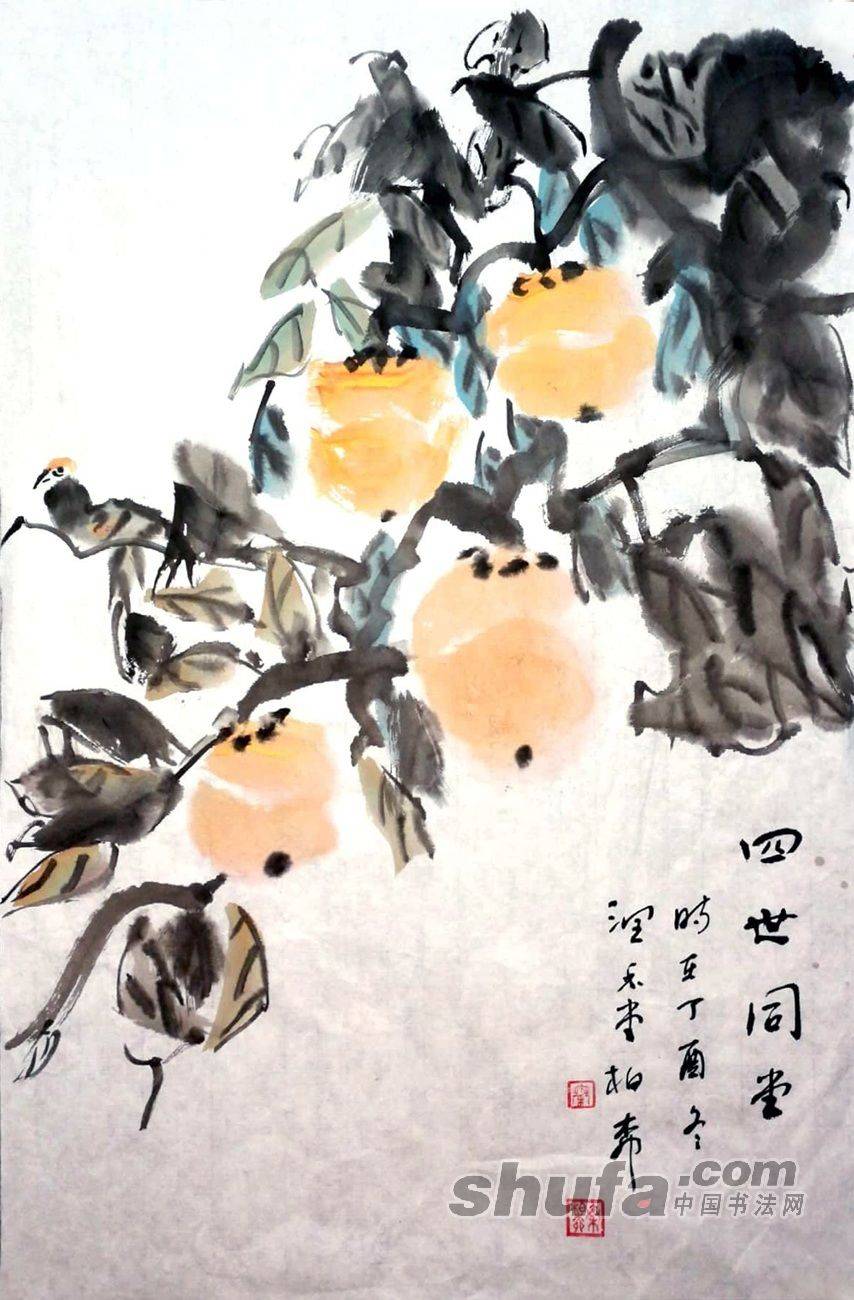 四世同堂
時在丁酉冬
润禾堂柏森
shufa.com
中国书法网